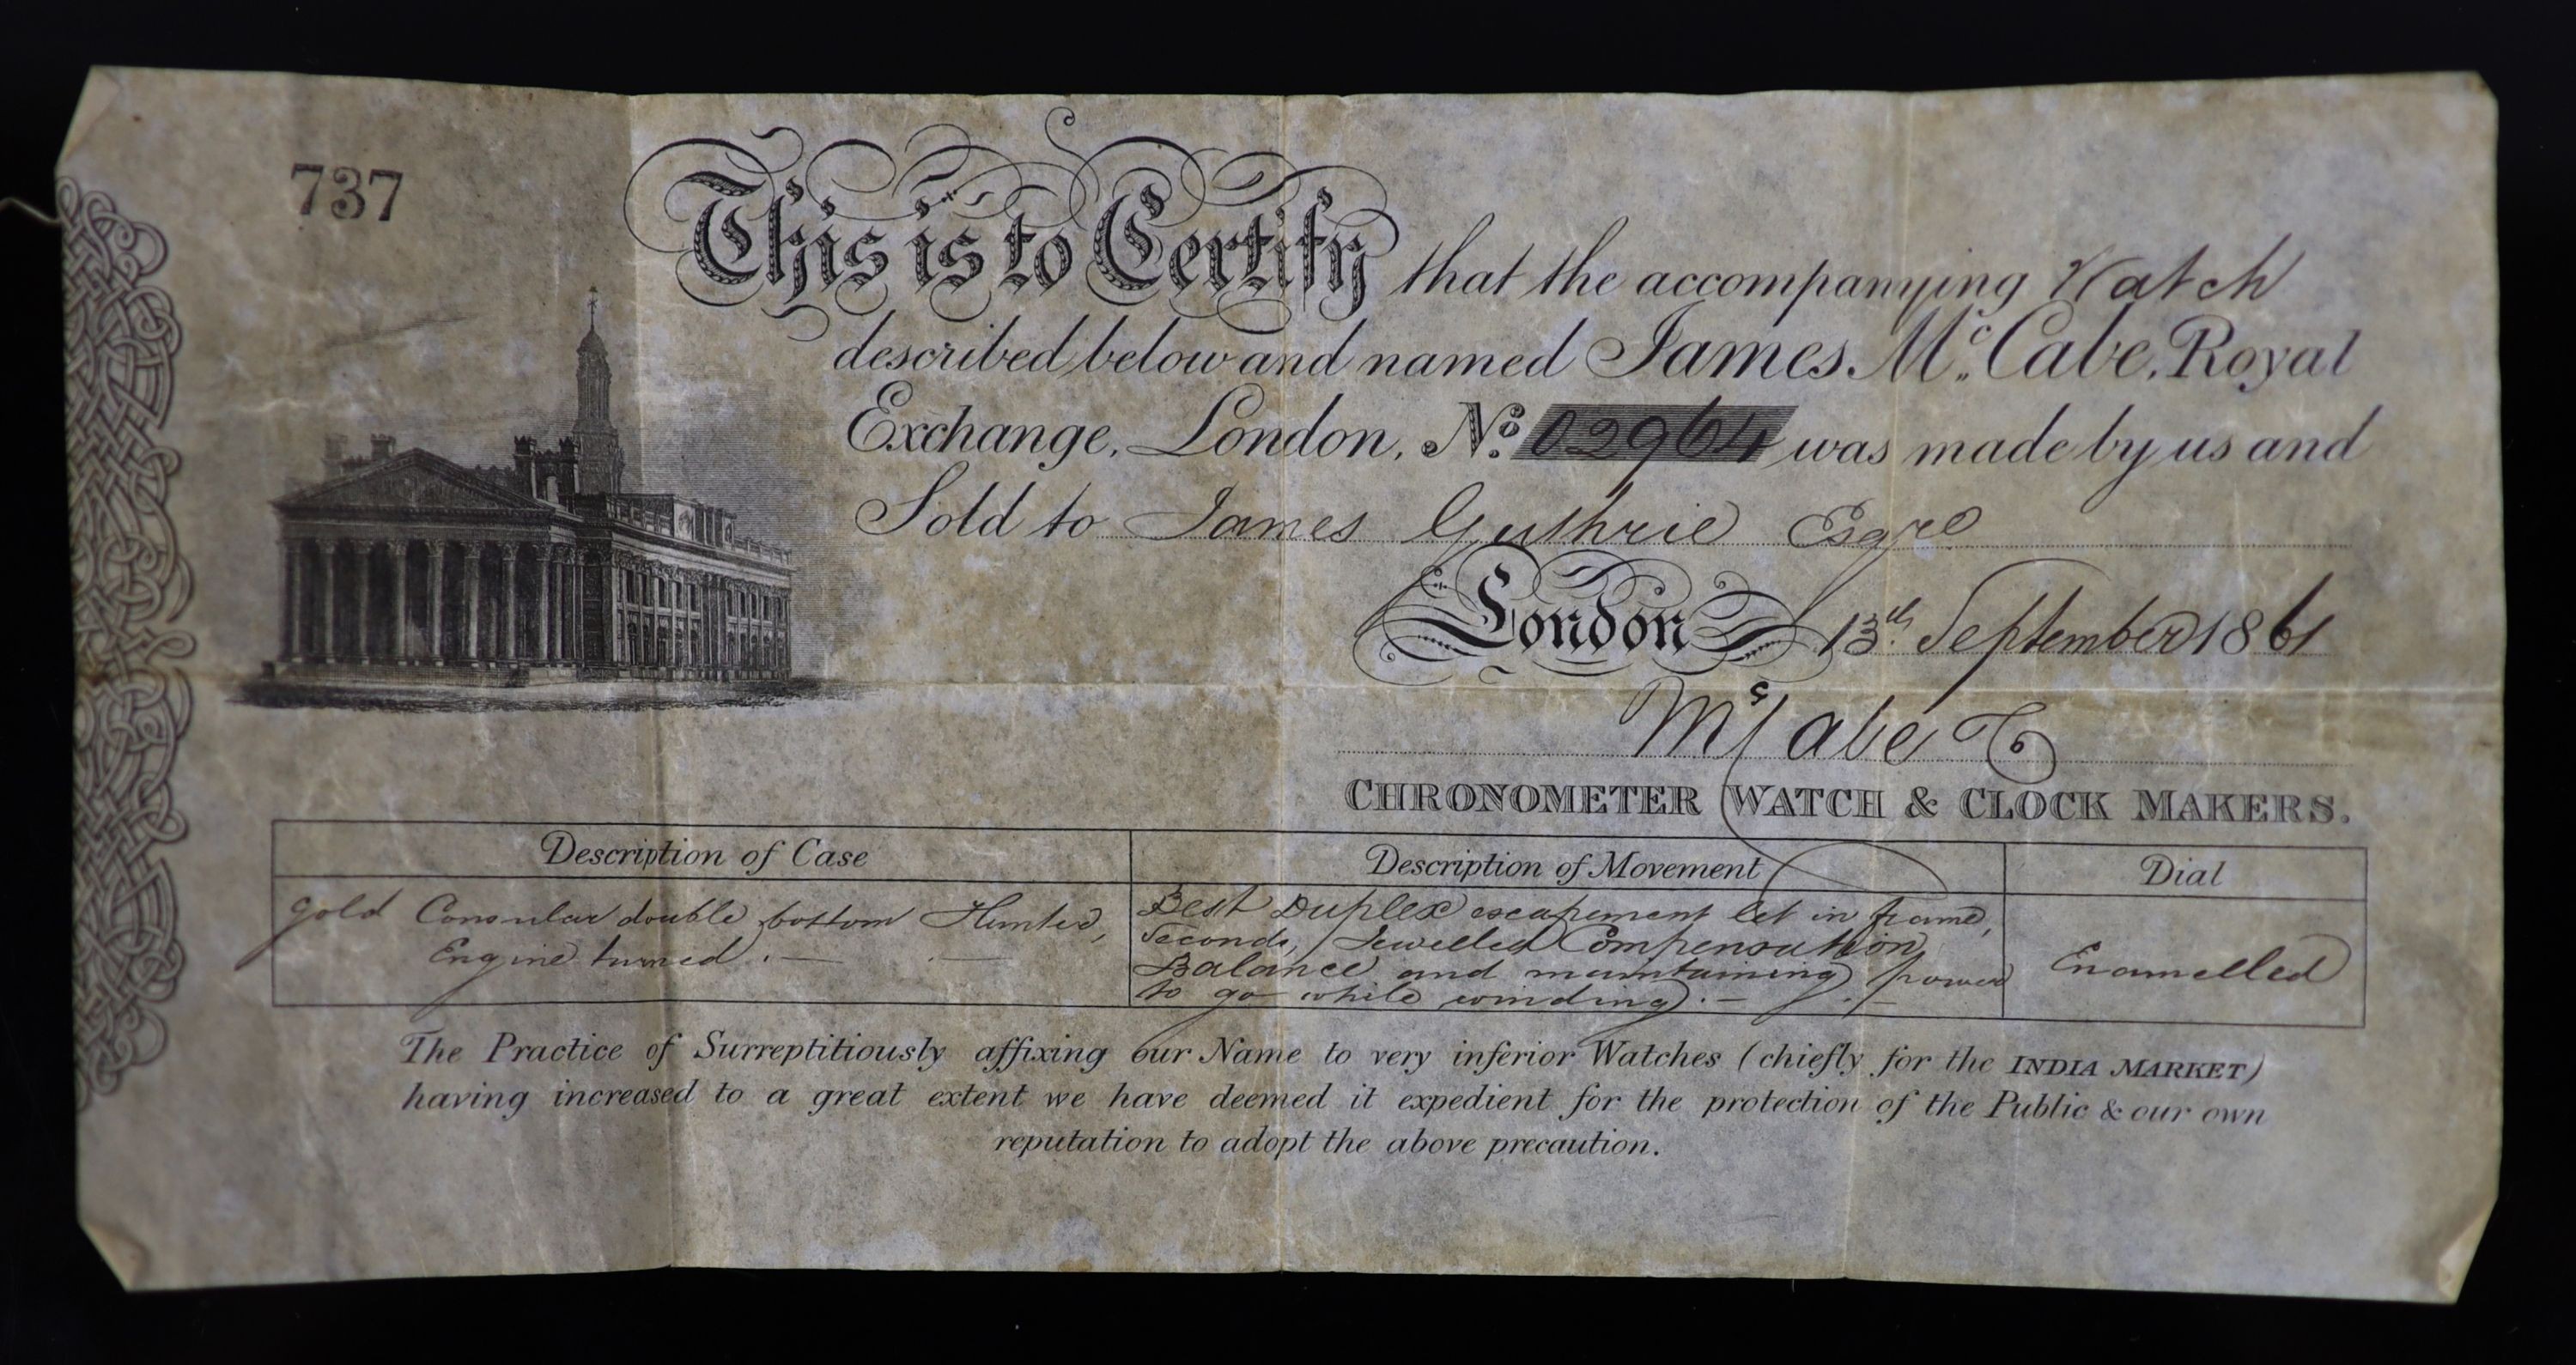 737
This is to Certify that the accompanying Watch
described below and named James McCabe, Royal
Exchange, London, No. 02964 was made by us and
Sold to James Guthrie Esqre
London 13th September 1861
McCabe & Co
CHRONOMETER WATCH & CLOCK MAKERS.
Description of Case
Description of Movement
Dial
Gold Consular double bottom Hunter,
Engine turned.—
Best Duplex escapement let in frame,
Seconds, Jewelled Compensation
Balance and maintaining power
to go while winding.—
Enamelled
The Practice of Surreptitiously affixing our Name to very inferior Watches (chiefly for the INDIA MARKET)
having increased to a great extent we have deemed it expedient for the protection of the Public & our own
reputation to adopt the above precaution.